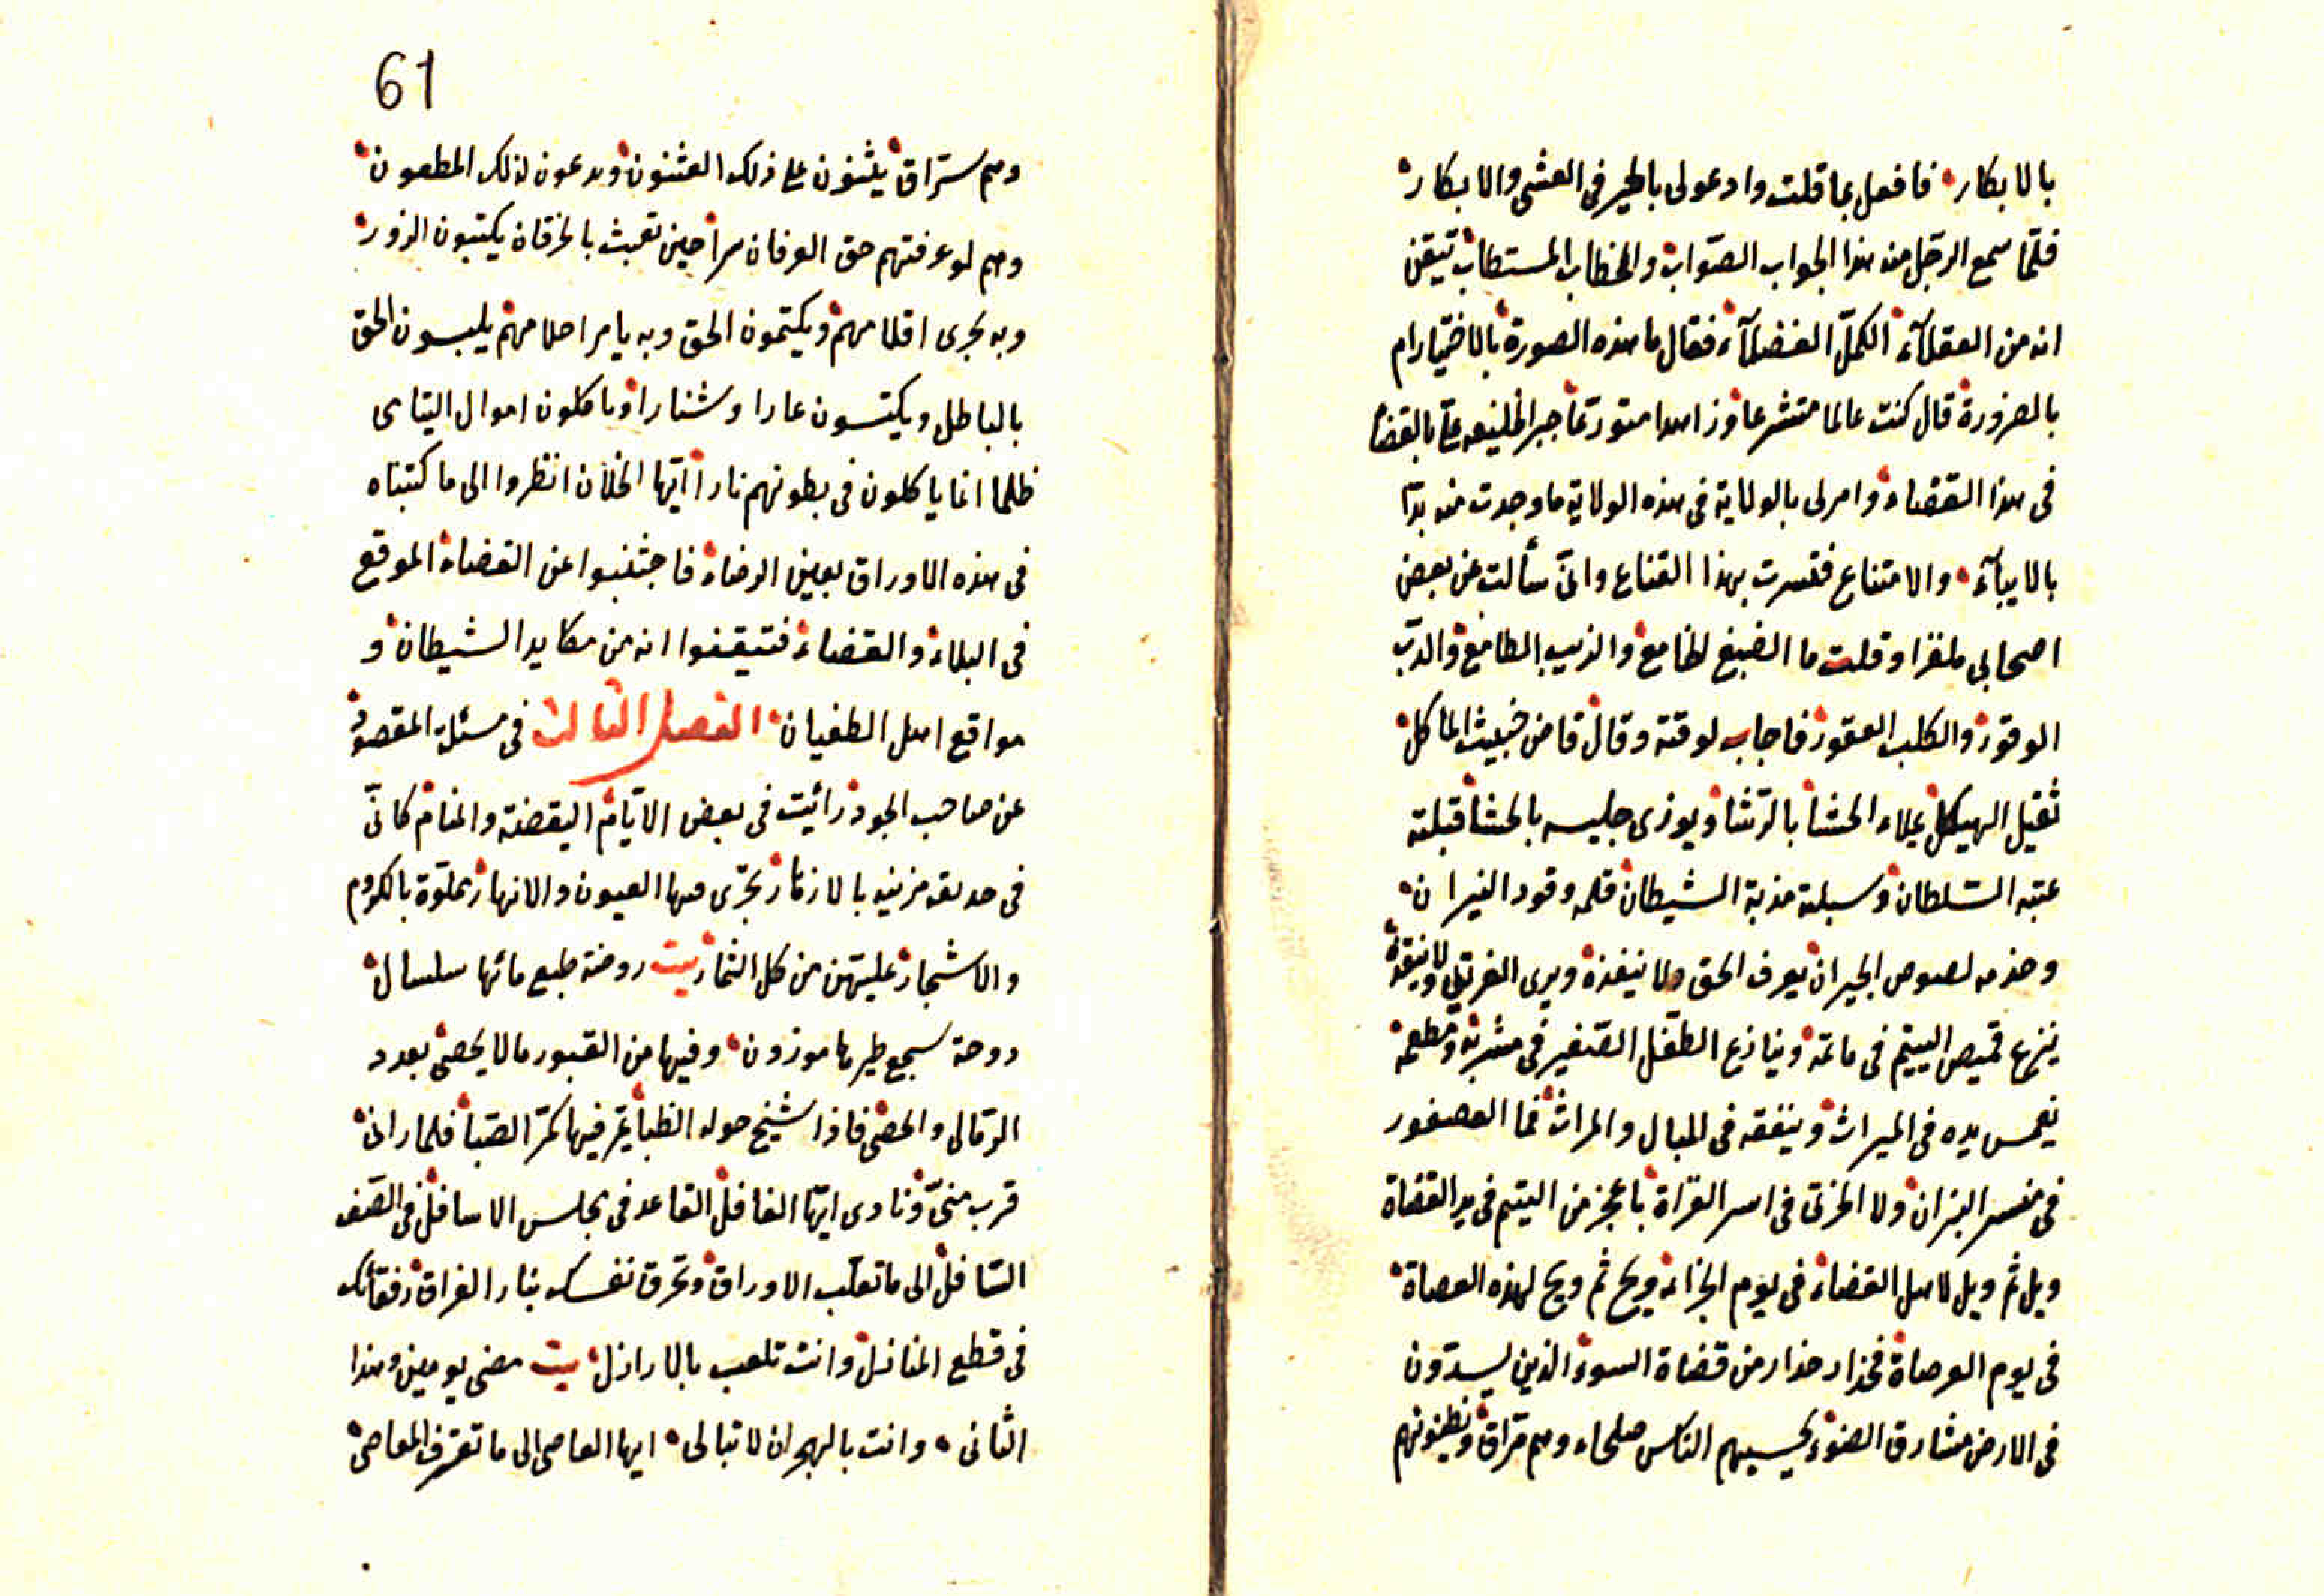 بالابكار فافعل بما قلت وادعولى بالخير فى العشى والابكار
فلمّا سمع الرجل منه هذا الجواب الصّواب والخطاب المستطاب تيقن
انه من العقلآء الكمّل الفضلآء فقال ما هذه الصورة بالاختيار ام
بالضرورة قال كنت عالما متشرعا وزاهدا متورّعا جبر الخليفه علىّ بالقضا
فى هذا القضاء وامرلى بالولاية فى هذه الولاية ما وجدت منه بدّا
بالايبآء والامتناع فقسرت بهذا القناع وانّى سألت عن بعض
اصحابى ملغزا وقلت ما الضبع الخامع والذيب الطامع والدبّ
الوقور والكلب العقور فاجاب لوقته وقال قاض خبيث الماكل
ثقيل الهيكل يملاء الحشا بالرّشا ويوذى جليسه بالحشا قبلته
عتبه السّلطان وسبلته مذبة الشيطان قلمه وقود النيران
وخذمه لصوص الجيران يعرف الحق ولا ينفذه ويرى الغريق ولا ينقذه
ينزع قميص اليتيم فى ماتمه وينازع الطّفل الصّغير فى مشربه ومطعمه
يغمس يده فى الميراث وينفقه فى المبال والمراث فما العصفور
فى منسر البزان ولا الحزنى فى اسر الغزاة باعجز من اليتيم فى يد القضاة
ويل ثم ويل لاهل القضاء فى يوم الجزاء ويح ثم ويح لهذه العصاة
فى يوم العرصاة فحذار حذار من قضاة السوء الذين يسدّون
فى الارض مشارق الضوء يحسبهم النّاس صلحاء وهم مرّاق ويظنونهم
61
وهم سرّاق يثنون على ذلك العثنون ويدعون لذلك المطعون
وهم لو عرفتهم حق العرفان سراحين تعبث بالخرفان يكتبون الزور
وبه يجرى اقلامهم ويكتمون الحق وبه يامر احلامهم يلبسون الحق
بالباطل ويكتسون عارا وشنارا وياكلون اموال اليتامى
ظلما انما ياكلون فى بطونهم نارا ايّها الخلّان انظروا الى ما كتبناه
فى هذه الاوراق بعين الرضاء فاجتنبوا عن القضاء الموقع
فى البلاء والقضاء فتيقنوا انه من مكايد الشيطان و
مواقع اهل الطغيان الفصل الثالث فى مسئلة المقصود
عن صاحب الجود رائيت فى بعض الايّام اليقضة والمنام كانّى
فى حديقه مزينه بالازهار يجرّى فيها العيون والانهار مملوّة بالكروم
والاشجار عليهن من كل الثمار بيت روضة طبع مائها سلسال
دوحة سجع طيرها موزون وفيها من القبور ما لا يحصى بعدد
الرمال والحصى فاذا شيخ حوله الظبا يمر فيها كمرّ الصّبا فلما رانى
قرب منىّ ونادى ايّها الغافل القاعد فى مجلس الاسافل فى الصّف
السّافل الى ما تقلب الاوراق وتحرق نفسك بنار الفراق رفقائك
فى قطع المنازل وانت تلعب بالاراذل بيت مضى يومين وهذا
الثانى وانت بالهجران لا تبالى ايها العاصى الى ما تقترف المعاصى